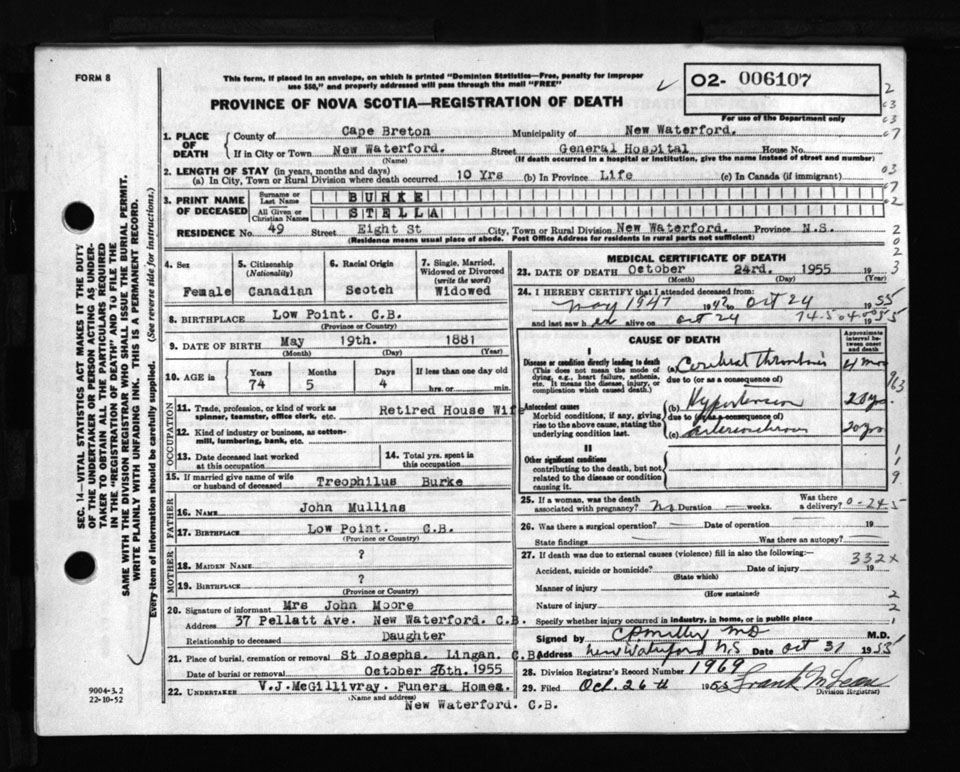 FORM 8
This form, if placed in an envelope, on which is printed "Dominion Statistics—Free, penalty for improper
use $50," and properly addressed will pass through the mail "FREE"
O2- 006107
For use of the Department only
PROVINCE OF NOVA SCOTIA—REGISTRATION OF DEATH
1. PLACE OF DEATH
County of Cape Breton Municipality of New Waterford.
If in City or Town New Waterford. Street General Hospital House No.
(Name) (If death occurred in a hospital or institution, give the name instead of street and number)
2. LENGTH OF STAY (in years, months and days)
(a) In City, Town or Rural Division where death occurred 10 Yrs (b) In Province Life (c) In Canada (if immigrant)
3. PRINT NAME OF DECEASED
Surname or Last Name BURKE
All Given or Christian Names STELLA
RESIDENCE No. 49 Street Eight St City, Town or Rural Division New Waterford. Province N.S.
(Residence means usual place of abode. Post Office Address for residents in rural parts not sufficient)
4. Sex Female
5. Citizenship (Nationality) Canadian
6. Racial Origin Scotch
7. Single, Married, Widowed or Divorced (write the word) Widowed
8. BIRTHPLACE Low Point. C.B.
(Province or Country)
9. DATE OF BIRTH May 19th. 1881
(Month) (Day) (Year)
10. AGE in Years Months Days If less than one day
74 5 4 hrs. or min.
OCCUPATION
11. Trade, profession, or kind of work as spinner, teamster, office clerk, etc. Retired House Wife
12. Kind of industry or business, as cotton-mill, lumbering, bank, etc.
13. Date deceased last worked at this occupation
14. Total yrs. spent in this occupation
15. If married give name of wife or husband of deceased Treophilus Burke
FATHER
16. NAME John Mullins
17. BIRTHPLACE Low Point. C.B.
(Province or Country)
MOTHER
18. MAIDEN NAME ?
19. BIRTHPLACE ?
(Province or Country)
20. Signature of informant Mrs John Moore
Address 37 Pellatt Ave. New Waterford. C.B.
Relationship to deceased Daughter
21. Place of burial, cremation or removal St Josephs. Lingan. C.B.
Date of burial or removal October 26th. 1955
22. UNDERTAKER V.J.McGillivray. Funera Homes.
(Name and address)
New Waterford. C.B.
MEDICAL CERTIFICATE OF DEATH
23. DATE OF DEATH October 24rd. 1955 19
(Month) (Day) (Year)
24. I HEREBY CERTIFY that I attended deceased from:
May 1947 to Oct 24 1955
and last saw her alive on Oct 24 1955
CAUSE OF DEATH
Approximate interval between onset and death
I
Disease or condition directly leading to death
(This does not mean the mode of dying, e.g., heart failure, asthenia, etc. It means the disease, injury, or complication which caused death.)
(a) Cerebral Thrombosis 4 mos
due to (or as a consequence of)
Antecedent causes
Morbid conditions, if any, giving rise to the above cause, stating the underlying condition last.
(b) Hypertension 20 yrs
due to (or as a consequence of)
(c) arteriosclerosis 20 yrs
II
Other significant conditions
contributing to the death, but not related to the disease or condition causing it.
25. If a woman, was the death associated with pregnancy? No Duration weeks. Was there a delivery?
26. Was there a surgical operation? Date of operation 19
State findings Was there an autopsy?
27. If death was due to external causes (violence) fill in also the following:—
332X
Accident, suicide or homicide? Date of injury 19
(State which)
Manner of injury
(How sustained)
Nature of injury
Specify whether injury occurred in industry, in home, or in public place
Signed by C P Miller MD M.D.
Address New Waterford N.S Date Oct 31 1955
28. Division Registrar's Record Number 1969
29. Filed Oct. 26th 1955 Frank
Division Registrar
SEC. 14—VITAL STATISTICS ACT MAKES IT THE DUTY
OF THE UNDERTAKER OR PERSON ACTING AS UNDER-
TAKER TO OBTAIN ALL THE PARTICULARS REQUIRED
IN THE "REGISTRATION OF DEATH" AND TO FILE THE
SAME WITH THE DIVISION REGISTRAR WHO SHALL ISSUE THE BURIAL PERMIT.
WRITE PLAINLY WITH UNFADING INK. THIS IS A PERMANENT RECORD.
Every item of information should be carefully supplied. (See reverse side for instructions.)
9004-3.2
22-10-52